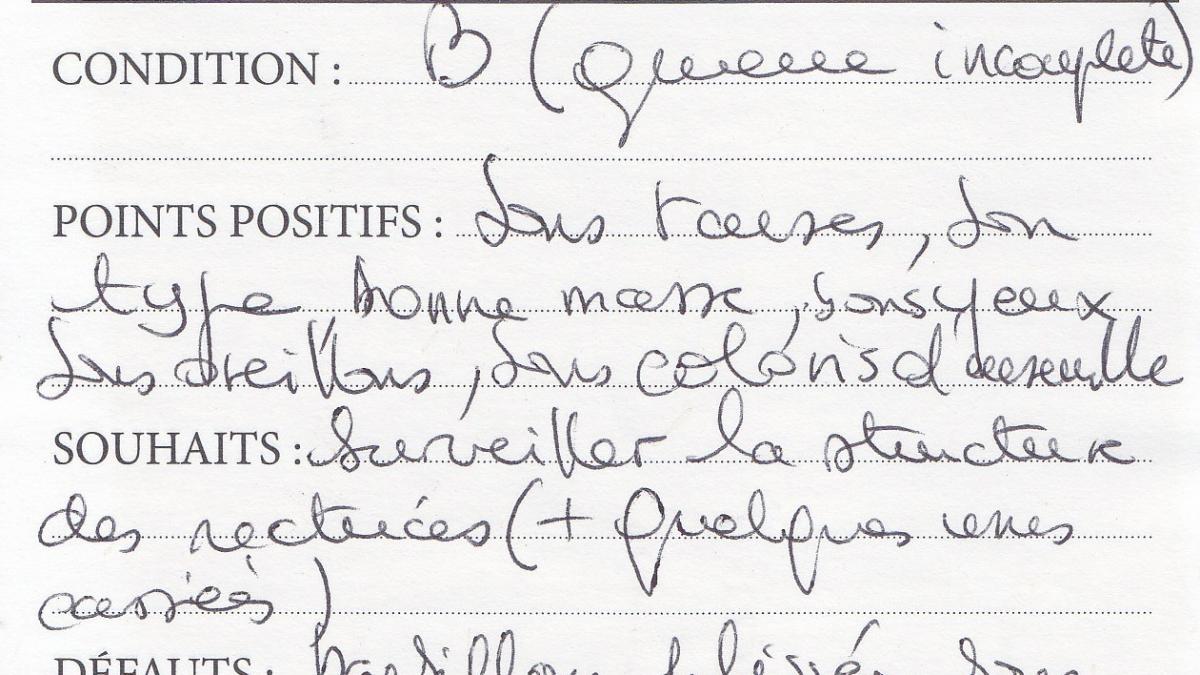 CONDITION : B (queue incomplète)
POINTS POSITIFS : Bons tarses, bon
type bonne masse, bons yeux
bons oreillons, bons coloris d'ensemble
SOUHAITS : Surveiller la structure
des rectrices (+ quelques unes
cassées)
DÉFAUTS : barbillon plissé